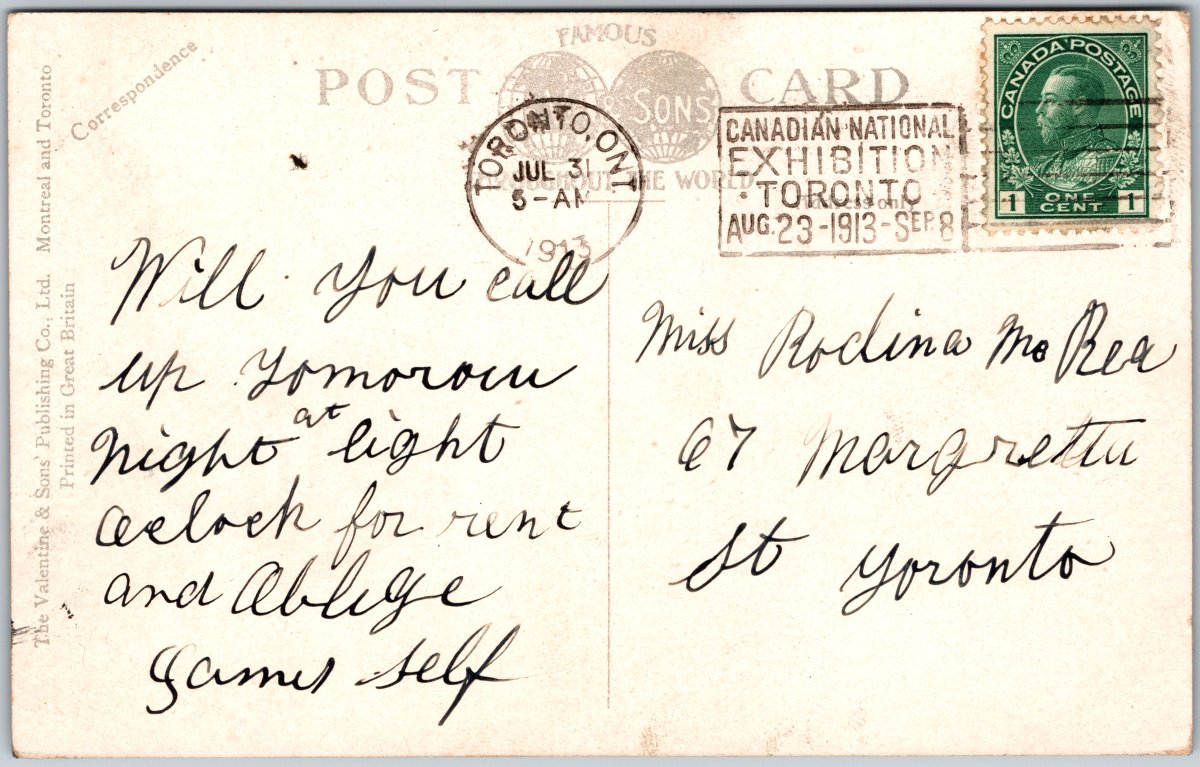 FAMOUS
POST CARD
SONS'
THROUGHOUT THE WORLD
Correspondence
The Valentine & Sons' Publishing Co., Ltd. Montreal and Toronto
Printed in Great Britain
TORONTO, ONT
JUL 31
5-AM
1913
CANADIAN NATIONAL
EXHIBITION
TORONTO
AUG. 23-1913-SEP. 8
CANADA POSTAGE
1 ONE CENT 1
Will you call
up tomorow
night at eight
oclock for rent
and Ablege
James Self
Miss Rodina Mc Rea
67 Margretta
St Toronto